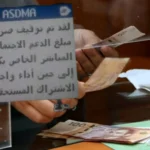 ASDMA
لقد تم توقيف صر
مبلغ الدعم الاجتما
المباشر الخاص بك
إلى حين أداء واج
الاشتراك المستحق